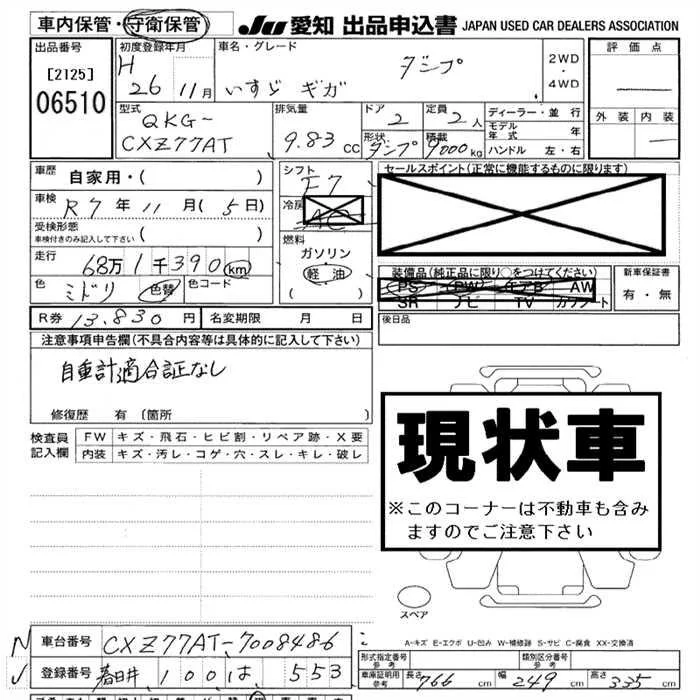 車内保管・守衛保管
JU 愛知 出品申込書 JAPAN USED CAR DEALERS ASSOCIATION
出品番号
[2125]
06510
初度登録年月
H 26 11月
車名・グレード
いすゞ ギガ ダンプ
2WD
・
4WD
評価点
外装 内装
型式
QKG-
CXZ77AT
排気量
9.83 CC
ドア
2
定員
2人
形状
ダンプ
積載
9000kg
ディーラー・並行
モデル年式 年
ハンドル 左・右
車歴
自家用・( )
車検
R7年11月(5日)
受検形態
車検付きのみ記入して下さい ( )
走行
68万1千390km
色
ミドリ 色替
色コード
シフト
F7
冷房
AC
燃料
ガソリン
軽油
( )
セールスポイント(正常に機能するものに限ります)
装備品(純正品に限り○をつけてください)
PS PW エアB AW
SR ナビ TV カワシート
新車保証書
有・無
R券 13,830円
名変期限 月 日
後日品
注意事項申告欄(不具合内容等は具体的に記入して下さい)
自重計適合証なし
修復歴 有 〔箇所 〕
検査員
記入欄
FW キズ・飛石・ヒビ割・リペア跡・X要
内装 キズ・汚レ・コゲ・穴・スレ・キレ・破レ
現状車
※このコーナーは不動車も含み
ますのでご注意下さい
スペア
A-キズ E-エクボ U-凹み W-補修跡 S-サビ C-腐食 XX-交換済
N 車台番号 CXZ77AT-7008486
登録番号 春日井 100 は 553
形式指定番号
参考
類別区分番号
参考
車庫証明用
参考
長さ 766 cm 幅 249 cm 高さ 335 cm